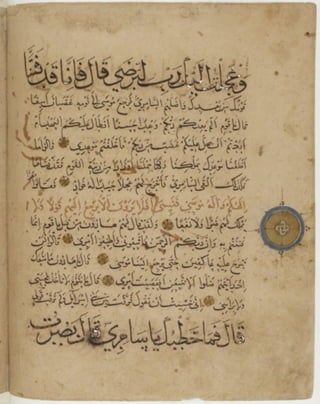 وعجلت إليك رب لترضى قال فإنا قد فتنا
قومك من بعدك وأضلهم السامري فرجع موسى إلى قومه غضبان أسفا
قال يا قوم ألم يعدكم ربكم وعدا حسنا أفطال عليكم العهد أم
أردتم أن يحل عليكم غضب من ربكم فأخلفتم موعدي قالوا ما
أخلفنا موعدك بملكنا ولكنا حملنا أوزارا من زينة القوم فقذفناها
فكذلك ألقى السامري فأخرج لهم عجلا جسدا له خوار فقالوا هذا
إلهكم وإله موسى فنسي أفلا يرون ألا يرجع إليهم قولا ولا
يملك لهم ضرا ولا نفعا ولقد قال لهم هارون من قبل يا قوم إنما
فتنتم به وإن ربكم الرحمن فاتبعوني وأطيعوا أمري قالوا لن
نبرح عليه عاكفين حتى يرجع إلينا موسى قال يا هارون ما منعك
إذ رأيتهم ضلوا ألا تتبعن أفعصيت أمري قال يا ابن أم لا تأخذ بلحيتي
ولا برأسي إني خشيت أن تقول فرقت بين بني إسرائيل ولم ترقب قولي
قال فما خطبك يا سامري قال بصرت